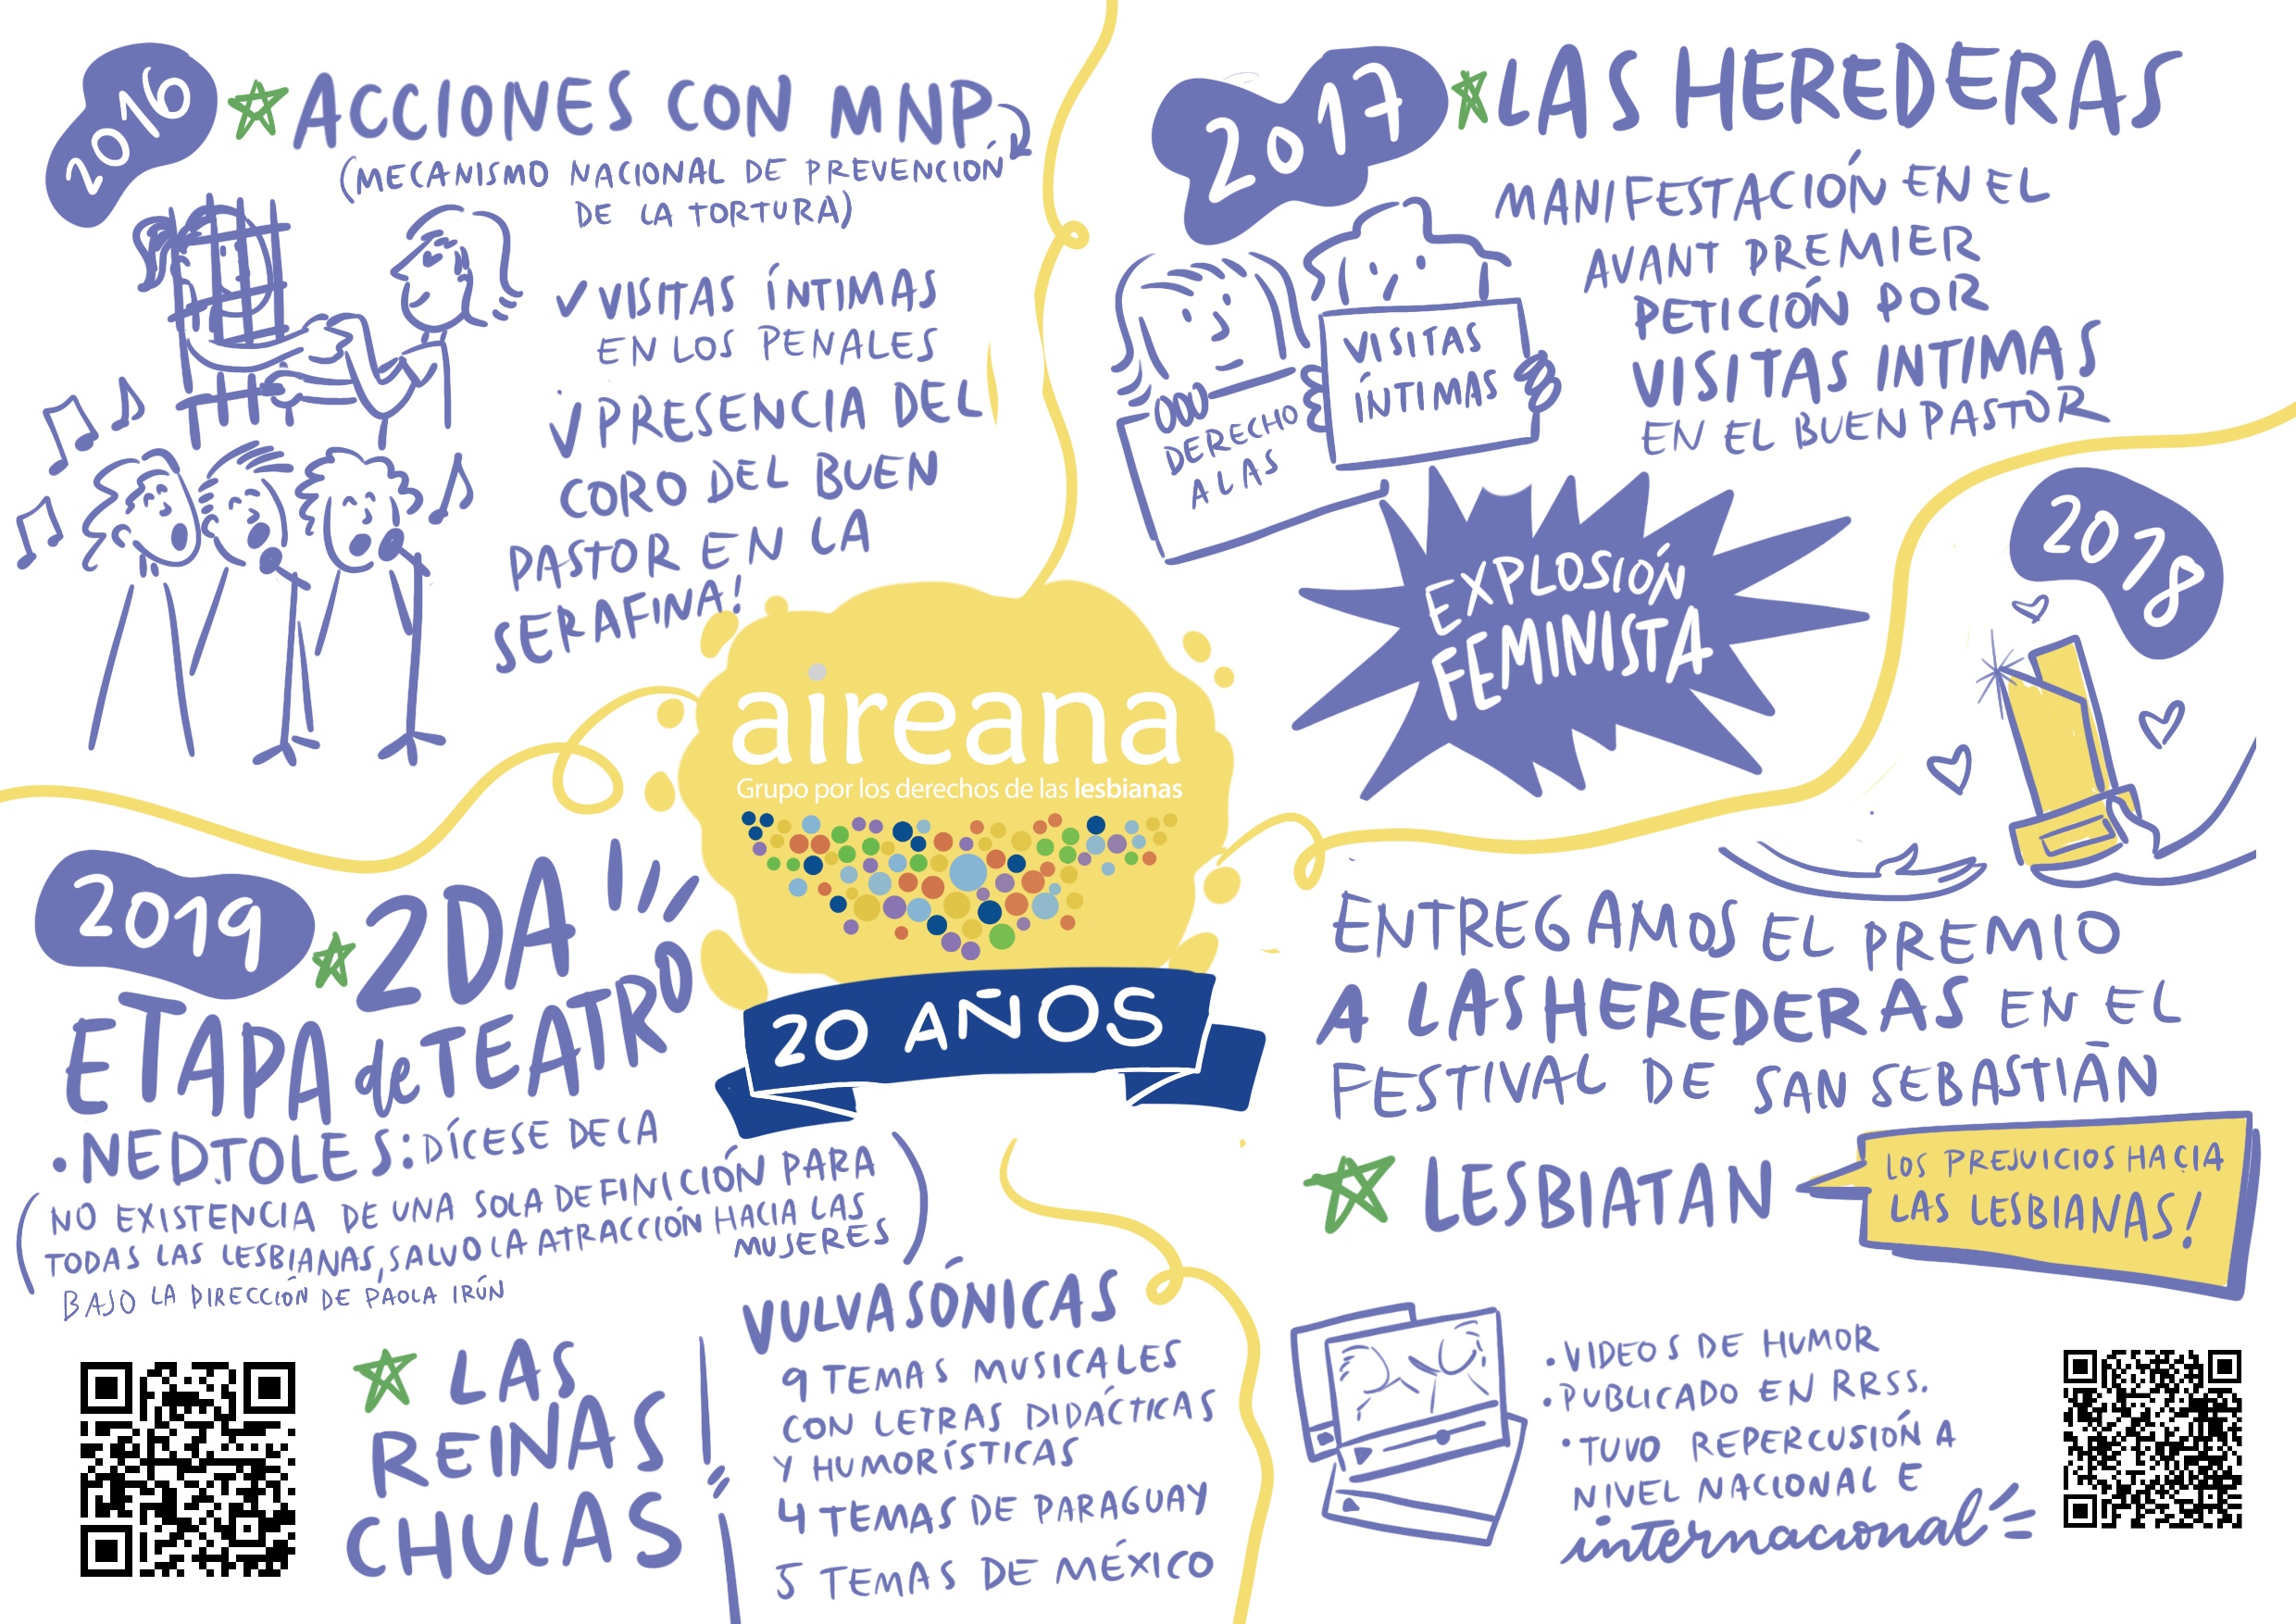 2016
ACCIONES CON MNP
(MECANISMO NACIONAL DE PREVENCIÓN
DE LA TORTURA)
VISITAS ÍNTIMAS
EN LOS PENALES
PRESENCIA DEL
CORO DEL BUEN
PASTOR EN LA
SERAFINA!
2017
LAS HEREDERAS
MANIFESTACIÓN EN EL
AVANT PREMIER
PETICIÓN POR
VISITAS INTIMAS
EN EL BUEN PASTOR
DERECHO
A LAS
VISITAS
ÍNTIMAS
EXPLOSIÓN
FEMINISTA
2018
ENTREGAMOS EL PREMIO
A LAS HEREDERAS EN EL
FESTIVAL DE SAN SEBASTIÁN
LESBIATAN
LOS PREJUICIOS HACIA
LAS LESBIANAS!
• VIDEOS DE HUMOR
• PUBLICADO EN RRSS.
• TUVO REPERCUSIÓN A
NIVEL NACIONAL E
internacional
aireana
Grupo por los derechos de las lesbianas
20 AÑOS
2019
2DA
ETAPA de TEATRO
• NEDTOLES: DÍCESE DE LA
(NO EXISTENCIA DE UNA SOLA DEFINICIÓN PARA
TODAS LAS LESBIANAS, SALVO LA ATRACCIÓN HACIA LAS
MUJERES)
BAJO LA DIRECCIÓN DE PAOLA IRÚN
LAS
REINAS
CHULAS
VULVASÓNICAS
9 TEMAS MUSICALES
CON LETRAS DIDÁCTICAS
Y HUMORÍSTICAS
4 TEMAS DE PARAGUAY
5 TEMAS DE MÉXICO